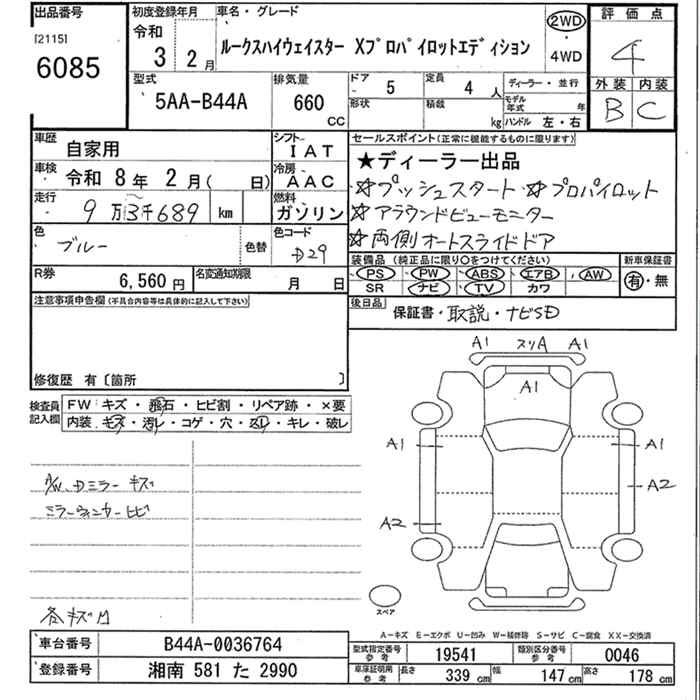 出品番号
[2115]
6085
初度登録年月
令和
3 2月
車名・グレード
ルークスハイウェイスター Xプロパイロットエディション
2WD
・
4WD
評価点
4
外装 内装
B C
型式
5AA-B44A
排気量
660
CC
ドア
5
定員
4 人
形状
積載
kg
ディーラー・並行
モデル年式 年
ハンドル 左・右
車歴
自家用
シフト
I A T
車検
令和 8年 2月( 日)
冷房
A A C
走行
9万3千689 km
燃料
ガソリン
色
ブルー
色替
色コード
D29
R券
6,560 円
名変通知期限
月 日
セールスポイント(正常に機能するものに限ります)
★ディーラー出品
・☆プッシュスタート・☆プロパイロット
・☆アラウンドビューモニター
☆両側オートスライドドア
装備品(純正品に限り○をつけてください)
PS PW ABS エアB AW
SR ナビ TV カワ
新車保証書
有・無
後日品
保証書・取説・ナビSD
注意事項申告欄(不具合内容等は具体的に記入して下さい)
修復歴 有〔箇所 〕
検査員記入欄
FW キズ・飛石・ヒビ割・リペア跡・×要
内装 キズ・汚レ・コゲ・穴・スレ・キレ・破レ
A/W、Dミラー キズ
ミラーウィンカーヒビ
各キズ有
A1 スリA A1
A1
A1 A1
A2
A2
スペア
A-キズ E-エクボ U-凹み W-補修跡 S-サビ C-腐食 XX-交換済
車台番号
B44A-0036764
登録番号
湘南 581 た 2990
型式指定番号
参考
19541
類別区分番号
参考
0046
車庫証明用
参考
長さ 339 cm
幅 147 cm
高さ 178 cm